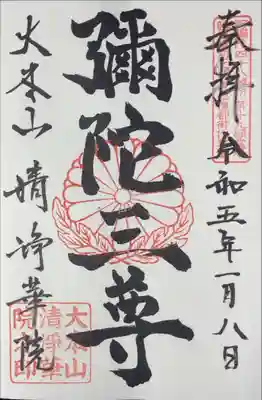 奉拝 令和五年一月八日
彌陀三尊
大本山 清浄華院
大本山
清浄華
院印